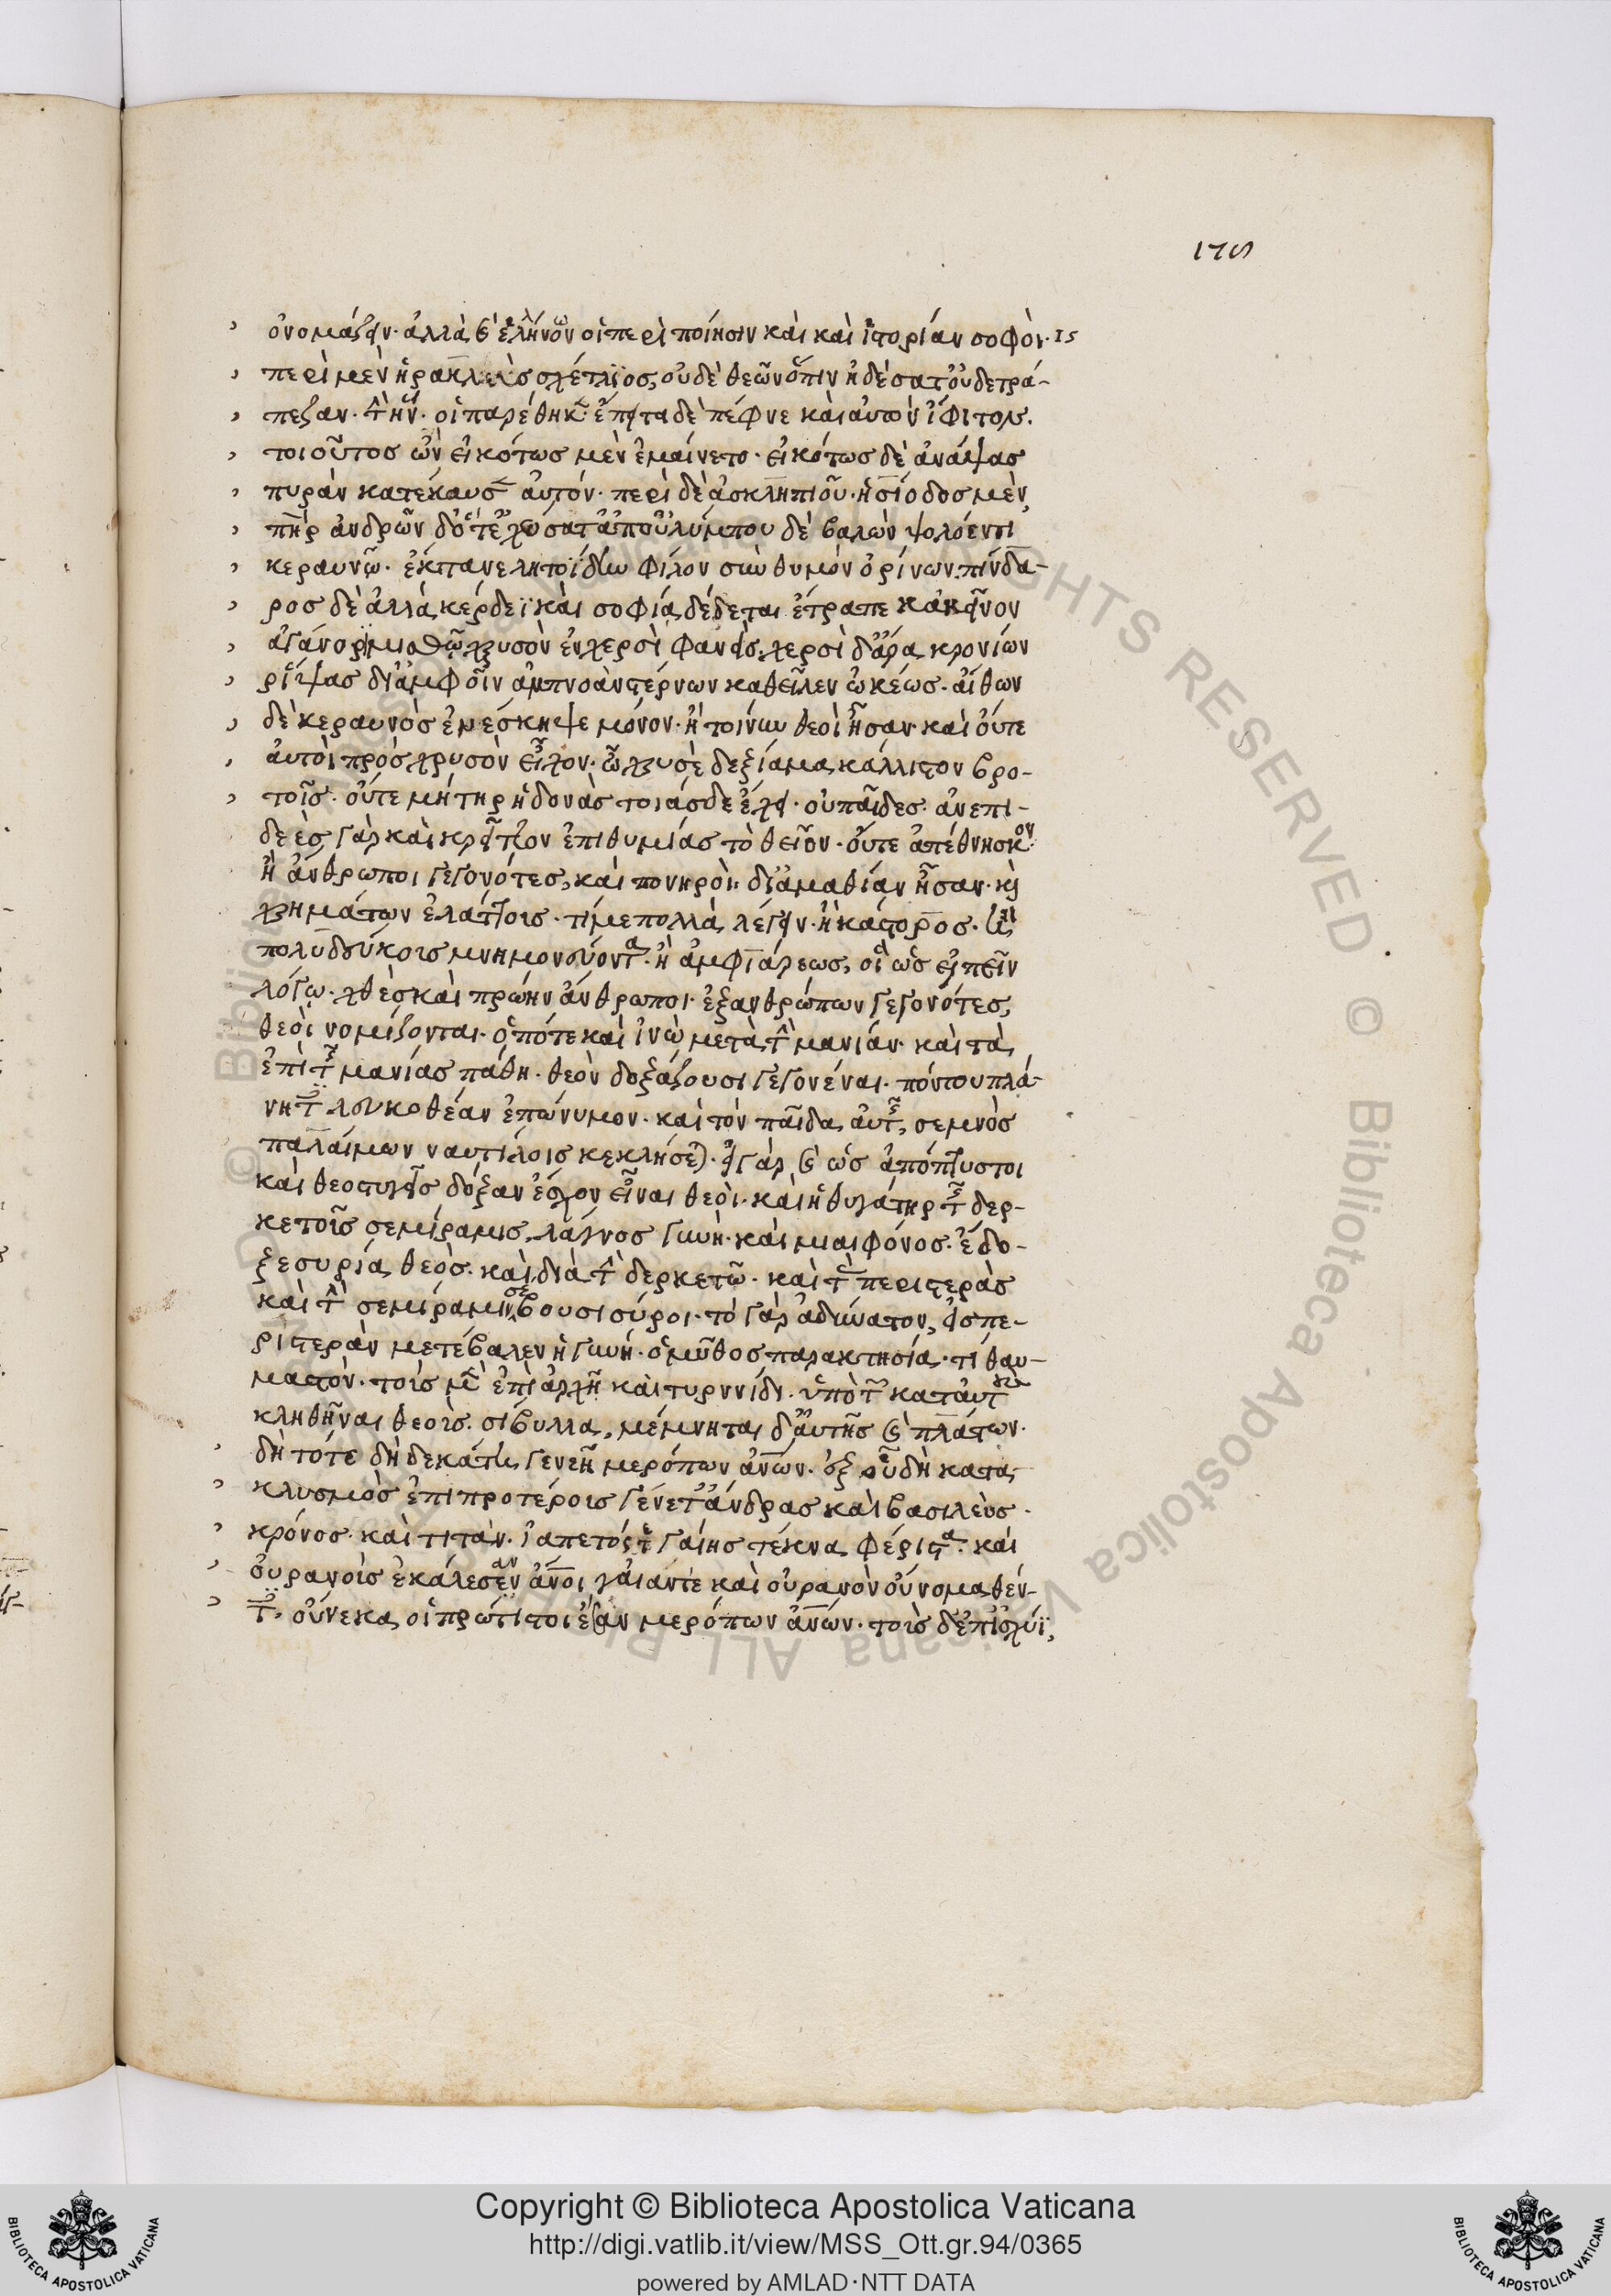 178
ὀνομάζειν· ἀλλὰ καὶ ἑλλήνων οἱ περὶ ποίησιν καὶ καὶ ἱστορίαν σοφοὶ· 15
περὶ μὲν ἡρακλέους σχέτλιος, οὐδὲ θεῶν ὄπιν ᾐδέσατ' οὐδὲ τρά-
πεζαν· τὴν ἥν· οἱ παρέθηκεν· ἔπειτα δὲ πέφνε καὶ αὐτὸν ἴφιτον.
τοιοῦτος ὢν εἰκότως μὲν ἐμαίνετο· εἰκότως δὲ ἀνάψας
πυρὰν κατέκαυσεν αὑτόν· περὶ δὲ ἀσκληπιοῦ· ἡσίοδος μὲν,
πατὴρ ἀνδρῶν τε χώσατ' ἀπ' οὐλύμπου δὲ βαλὼν ψολόεντι
κεραυνῷ· ἔκτανε λητοΐδην φίλον σὺν θυμὸν ὀρίνων. πίνδα-
ρος δὲ ἀλλὰ κέρδεϊ καὶ σοφία δέδεται ἔτραπε κἀκεῖνον
ἀγάνορι μισθῷ χρυσὸν ἐν χερσὶ φανεὶς. χερσὶ δ' ἄρα κρονίων
ῥίψας δι' ἀμφοῖν ἀμπνοὰν στέρνων καθεῖλεν ὠκέως· αἴθων
δὲ κεραυνὸς ἐνέσκηψε μόνον· ἢ τοίνυν θεοὶ ἦσαν· καὶ οὔτε
αὐτοὶ πρὸς χρυσὸν εἶχον· ὦ χρυσὲ δεξίαμα κάλλιστον βρο-
τοῖς· οὔτε μήτηρ ἡδονὰς τοιάσδε ἔχει· οὐ παῖδες· ἀνεπι-
δεὲς γὰρ καὶ κρεῖττον ἐπιθυμίας τὸ θεῖον· οὔτε ἀπέθνησκον·
ἢ ἄνθρωποι γεγονότες, καὶ πονηροὶ· δι' ἀμαθίαν ἦσαν· καὶ
χρημάτων ἐλάττοις· τί με πολλὰ λέγειν· ἢ κάστορος· ἢ
πολυδεύκοις μνημονεύοντα· ἢ ἀμφιάρεως, οἳ ὡς εἰπεῖν
λόγῳ· χθὲς καὶ πρώην ἄνθρωποι· ἐξ ἀνθρώπων γεγονότες,
θεοὶ νομίζονται· ὁπότε καὶ ἰνὼ μετὰ τὴν μανίαν· καὶ τὰ
ἐπὶ τῆς μανίας πάθη· θεὸν δοξάζουσι γεγονέναι· πόντου πλά-
νητες λευκοθέαν ἐπώνυμον· καὶ τὸν παῖδα αὐτῆς, σεμνὸς
παλαίμων ναυτίλοις κεκλήσεται· εἰ γὰρ καὶ ὡς ἀπόπτυστοι
καὶ θεοστυγεῖς δόξαν ἔσχον εἶναι θεοὶ· καὶ ἡ θυγάτηρ τῆς δερ-
κετοῖς σεμίραμις, λάγνος γυνὴ· καὶ μιαιφόνος· ἔδο-
ξε συρία θεὸς· καὶ διὰ τὴν δερκετῶ· καὶ τὰς περιστερὰς
καὶ τὴν σεμίραμιν σέβουσι σύροι· τὸ γὰρ ἀδύνατον, εἰς πε-
ριστερὰν μετέβαλεν ἡ γυνή· ὁ μῦθος παρὰ κτησία· τί θαυ-
μαστὸν· τοὺς μὲν ἐπὶ ἀρχῇ καὶ τυραννίδι· ὑπὸ τῶν κατ' αὐτοὺς
κληθῆναι θεοὺς· σίβυλλα, μέμνηται δ' αὐτῆς καὶ πλάτων·
δὴ τότε δὴ δεκάτη γενεῆ μερόπων ἀνθρώπων· ἐξ οὗ δὴ κατα-
κλυσμὸς ἐπὶ προτέροις γένετ' ἄνδρας καὶ βασιλεὺς·
κρόνος· καὶ τιτὰν· ἰαπετός τε γαίης τέκνα φέριστα· καὶ
οὐρανοῖς ἐκάλεσαν ἄνθρωποι γαῖάν τε καὶ οὐρανὸν οὔνομα θέν-
τες· οὕνεκα οἱ πρώτιστοι ἔσαν μερόπων ἀνθρώπων· τοὺς δ' ἐπ' ἰσχύϊ,
Copyright © Biblioteca Apostolica Vaticana
http://digi.vatlib.it/view/MSS_Ott.gr.94/0365
powered by AMLAD·NTT DATA